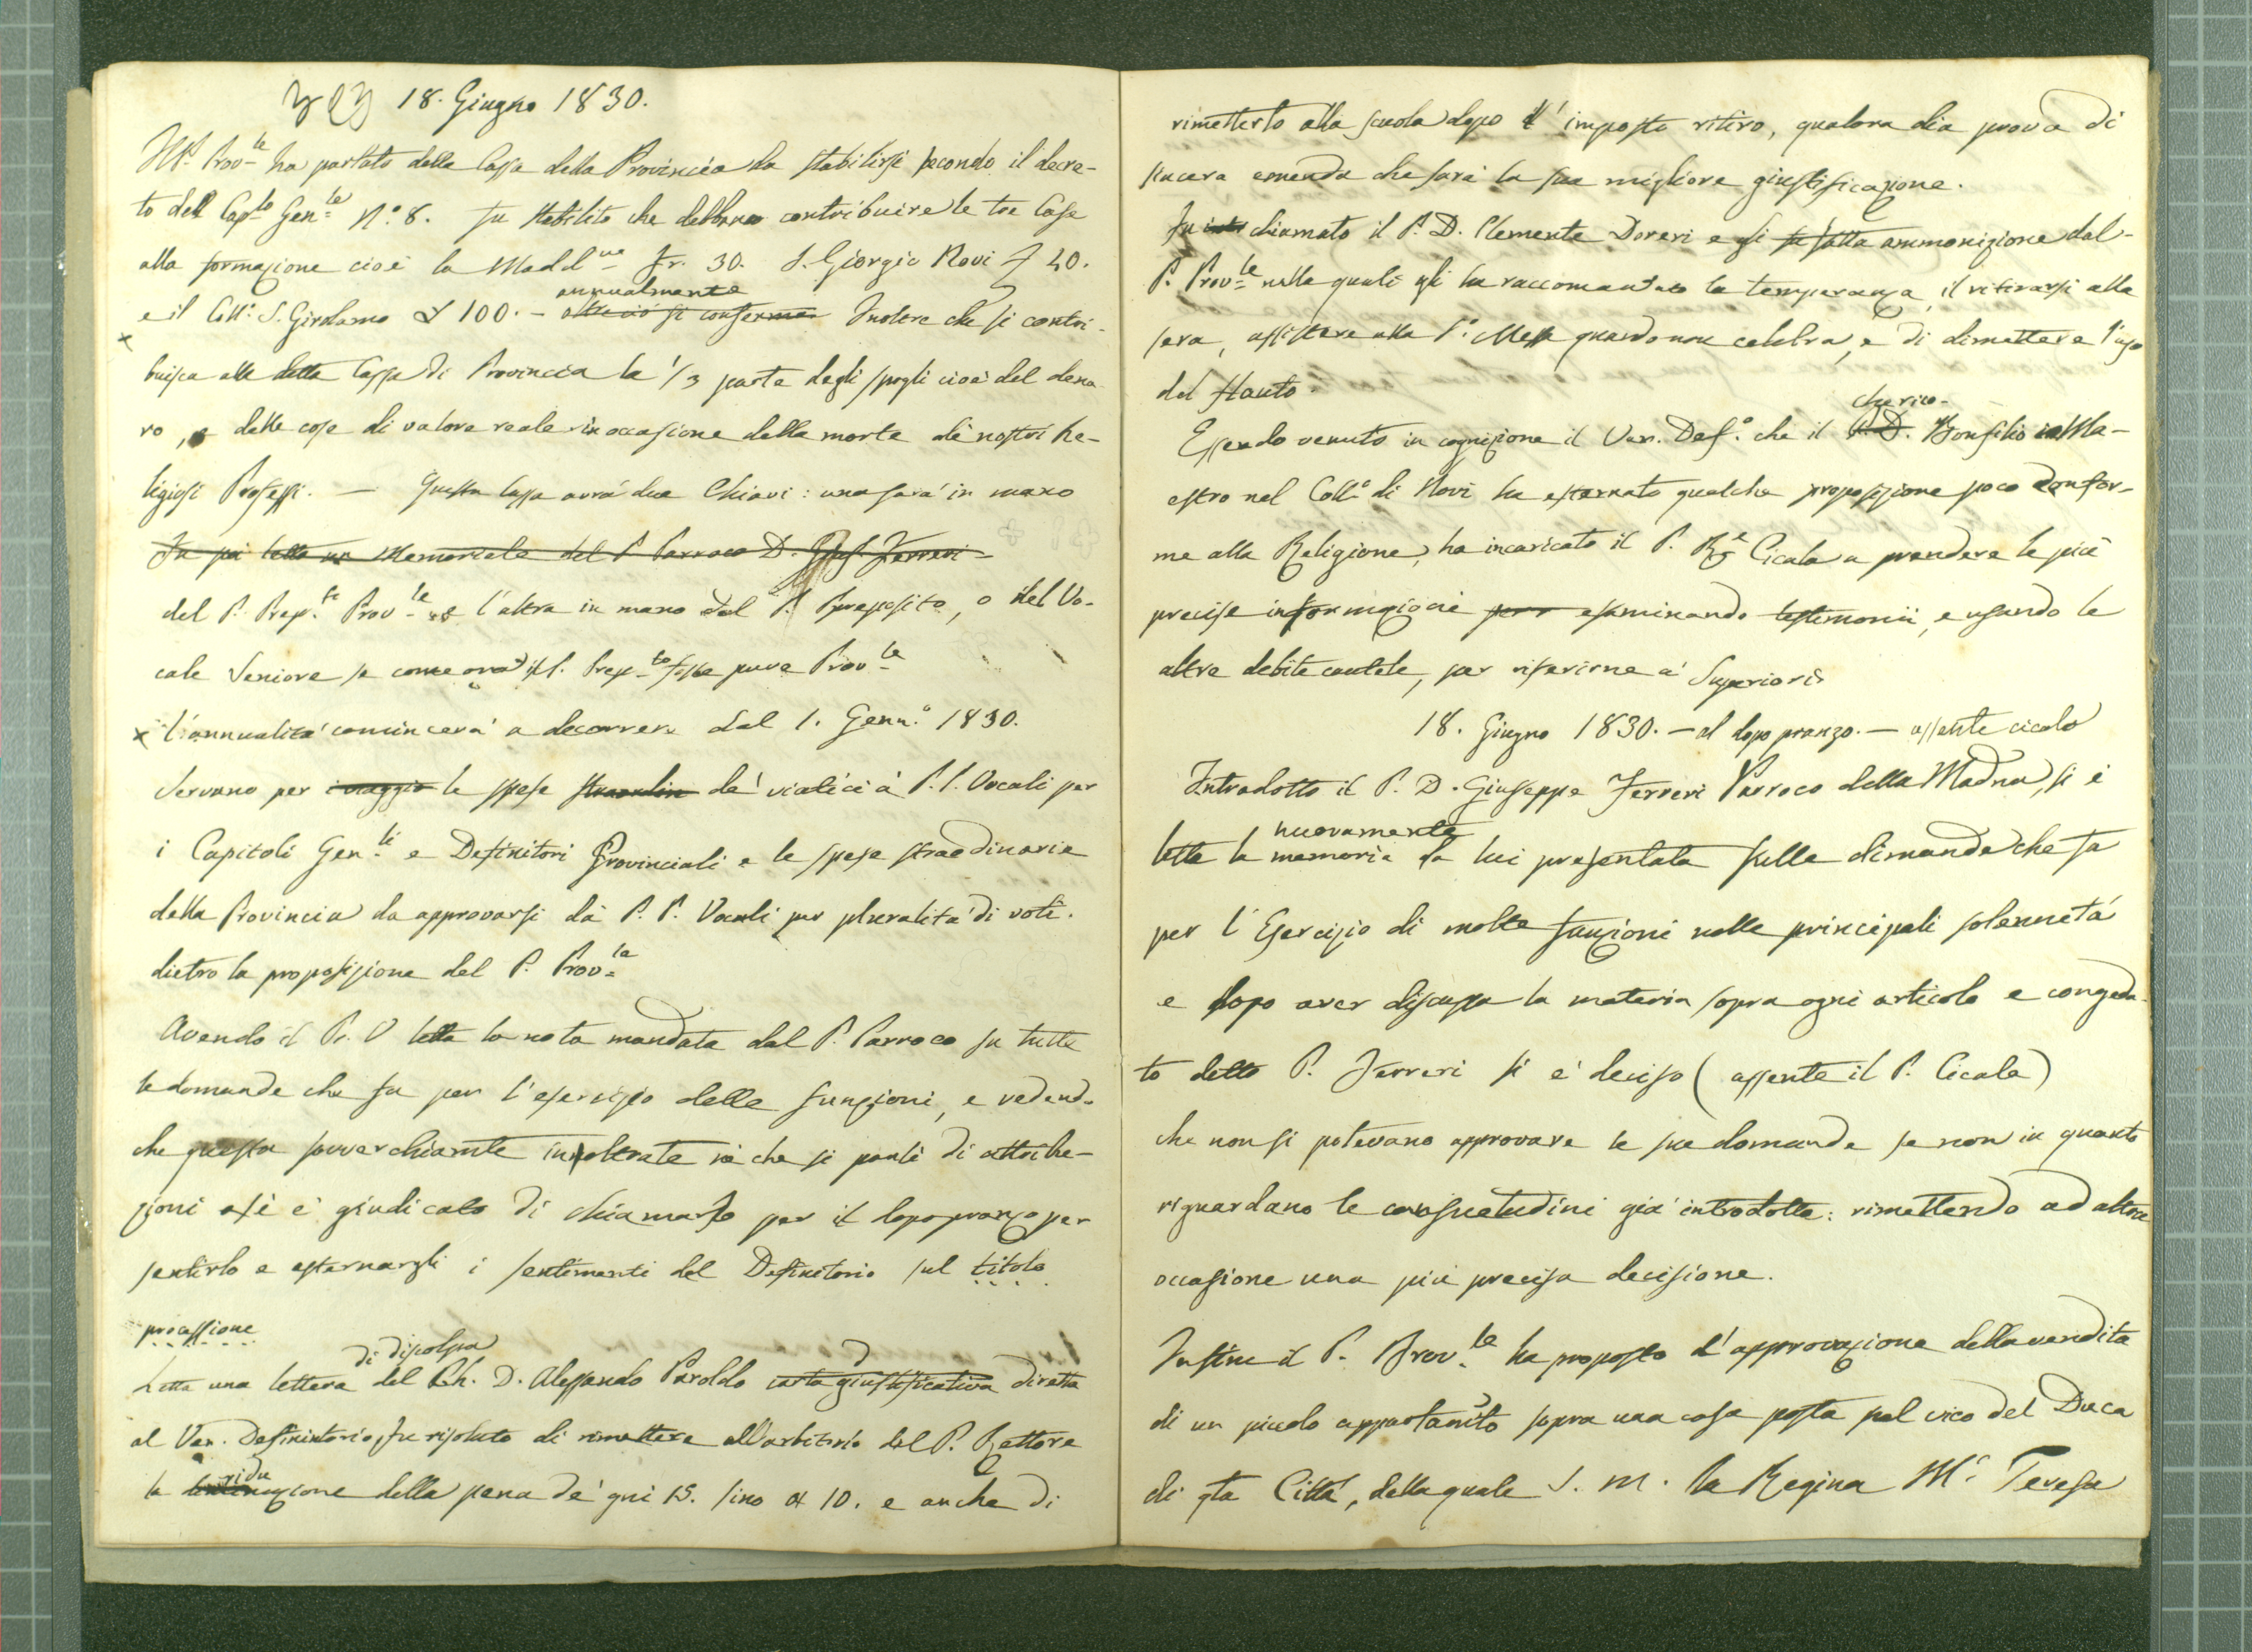 18. Giugno 1830.
Il P. Prov.le ha parlato della Cassa della Provincia da stabilirsi secondo il decre-
to dell Cap.lo Gen.le N.° 8. fu stabilito che debbano contribuire le tre Case
alla formazione cioè la Madd.na Fr. 30. S. Giorgio Novi £ 40.
annualmente
e il Coll.° S. Girolamo £ 100. - oltre ciò si conferma Inoltre che si contri-
buisca alla detta Cassa di Provincia la 1/3 parte degli spogli cioè del dena
ro, e delle cose di valore reale in occasione della morte de' nostri Re-
ligiosi Professi. — Questa Cassa avrà due Chiavi: una sarà in mano
Fu poi letto un Memoriale del P. Parroco D. Gius. Ferreri
del P. Prep.to Prov.le e l'altra in mano del P. Preposito, o del Vo-
cale Seniore se come ora il P. Prep.to fosse pure Prov.le
x L'annualità comincerà a decorrere dal 1. Genn.° 1830.
Servano per i viaggio le spese straordin de' viatici a' P.P. Vocali per
i Capitoli Gen.li e Definitori Provinciali e le spese straordinarie
della Provincia da approvarsi da' P. P. Vocali per pluralità di voti.
dietro la proposizione del P. Prov.le
Avendo il P. V letta la nota mandata dal P. Parroco su tutte
le domande che fa per l'esercizio delle funzioni, e vedendo
che questa soverchiamte inoltrate sì che si parli di attribu-
zioni si è giudicato di chiamarlo per il dopopranzo per
sentirlo e esternargli i sentimenti del Definitorio sul titolo
processione
di discolpa
Letta una lettera del Ch. D. Alessandro Paroldo carta giustificativa diretta
al Ven. Definitorio, fu risoluto di rimettere all'arbitrio del P. Rettore
ridu
la zione della pena de' gni 15. sino a 10. e anche di
rimetterlo alla scuola dopo l' imposto ritiro, qualora dia prova di
sincera emenda che sarà la sua migliore giustificazione.
Fu chiamato il P. D. Clemente Doveri e gli fu fatta ammonizione dal
P. Prov.le nella quale gli ha raccomandato la temperanza, il ritirarsi alla
sera, assistere alla S. Messa quando non celebra, e di dimettere l'uso
del flauto.
cherico
Essendo venuto in cognizione il Ven. Def.° che il P. D. Bonfilio Ma-
estro nel Coll.° di Novi ha esternato qualche proposizione poco confor-
me alla Religione, ha incaricato il P. Re Cicala a prendere le più
precise informazioni per esaminando testimonii, e usando le
altre debite cautele, per riferirne a' Superiori
18. Giugno 1830. — al dopo pranzo. — assente cicala
Introdotto il P. D. Giuseppe Ferreri Parroco della Madna, si è
nuovamente
letta la memoria da lui presentata sulle dimande che fa
per l'Esercizio di molte funzioni nelle principali solennità
e dopo aver discussa la materia sopra ogni articolo e congeda-
to detto P. Ferreri si è deciso (assente il P. Cicala)
che non si potevano approvare le sue domande se non in quanto
riguardano le consuetudini già introdotte: rimettendo ad altra
occasione una più precisa decisione.
Infine il P. Prov.le ha proposto l'approvazione della vendita
di un piccolo appartamto sopra una casa posta nel vico del Duca
di qta Città, della quale S. M. la Regina M.a Teresa